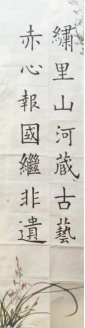 繡里山河蔵古藝
赤心報國繼非遺